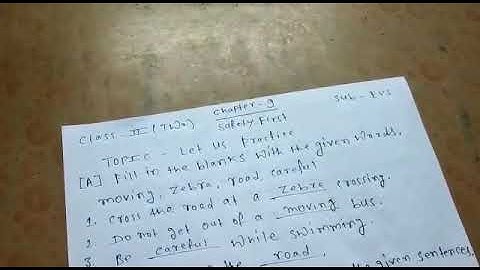 Chapter-9
Sub - EVS
Class II (Two)
Safety First
TOPIC - Let us Practice
[A] Fill in the blanks with the given words.
moving, zebra, road, careful
1. Cross the road at a zebra crossing.
2. Do not get out of a moving bus.
3. Be careful while swimming.
the road.
the given sentences.